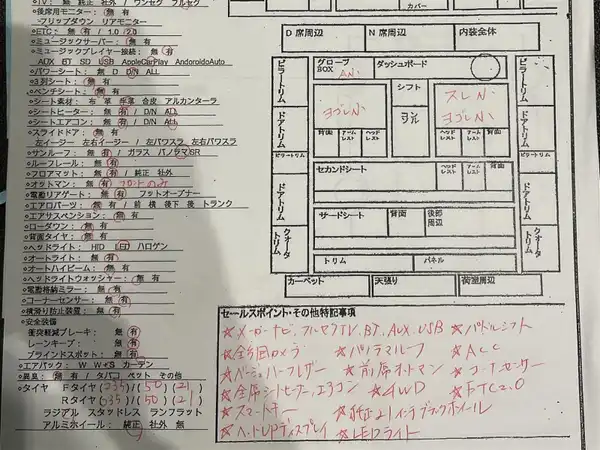 ○TV： 無 純正 社外 / ワンセグ フルセグ
○後席用モニター： 無 有
-フリップダウン リアモニター
○ETC： 無 有 / 1.0 2.0
○ミュージックサーバー： 無 有
○ミュージックプレイヤー接続： 無 有
AUX BT SD USB AppleCarPlay AndoroidoAuto
○パワーシート： 無 D D/N ALL
○3列シート： 無 有
○ベンチシート： 無 有
○シート素材： 布 革 半革 合皮 アルカンターラ
○シートヒーター： 無 有 / D/N ALL
○シートエアコン： 無 有 / D/N ALL
○スライドドア： 無 有
左イージー 左右イージー / 左パワスラ 左右パワスラ
○サンルーフ： 無 有 / ガラス パノラマSR
○ルーフレール： 無 有
○フロアマット： 無 有 / 純正 社外
○オットマン： 無 有 フロントのみ
○電動リアゲート： 無 有 フットオープナー
○エアロパーツ： 無 有 / 前 横 後下 後 トランク
○エアサスペンション： 無 有
○ローダウン： 無 有
○背面タイヤ： 無 有
○ヘッドライト： HID LED ハロゲン
○オートライト： 無 有
○オートハイビーム： 無 有
○ヘッドライトウォッシャー： 無 有
○電動格納ミラー： 無 有
○コーナーセンサー： 無 有
○横滑り防止装置： 無 有
○安全装備
衝突軽減ブレーキ： 無 有
レーンキープ： 無 有
ブラインドスポット： 無 有
○エアバック： W W+S カーテン
○異臭： 無 有 / タバコ ペット その他
○タイヤ Fタイヤ(235)/(50)(21)
Rタイヤ(235)/(50)(21)
ラジアル スタッドレス ランフラット
アルミホイール： 純正 社外 無
カバー
D 席周辺 N 席周辺 内装全体
ピラートリム
グローブBOX
ダッシュボード
ピラートリム
シフト
コンソール
ヨゴレ小
スレ小
ヨゴレ小
ドアトリム
ドアトリム
背面 アームレスト ヘッドレスト ヘッドレスト アームレスト 背面
ピラートリム
ピラートリム
セカンドシート
ドアトリム
ドアトリム
サードシート 背面 後部周辺
クォータトリム
クォータトリム
トリム パネル
カーペット 天張り 荷室周辺
セールスポイント・その他特記事項
☆メーカーナビ、フルセグTV、BT、AUX、USB ☆パドルシフト
☆全方囲カメラ ☆パノラマルーフ ☆ACC
☆ベージュハーフレザー ☆前席オットマン ☆コーナーセンサー
☆全席シートヒーター、エアコン ☆4WD ☆ETC2.0
☆スマートキー ☆純正21インチブラックホイール
☆ヘッドUPディスプレイ ☆LEDライト